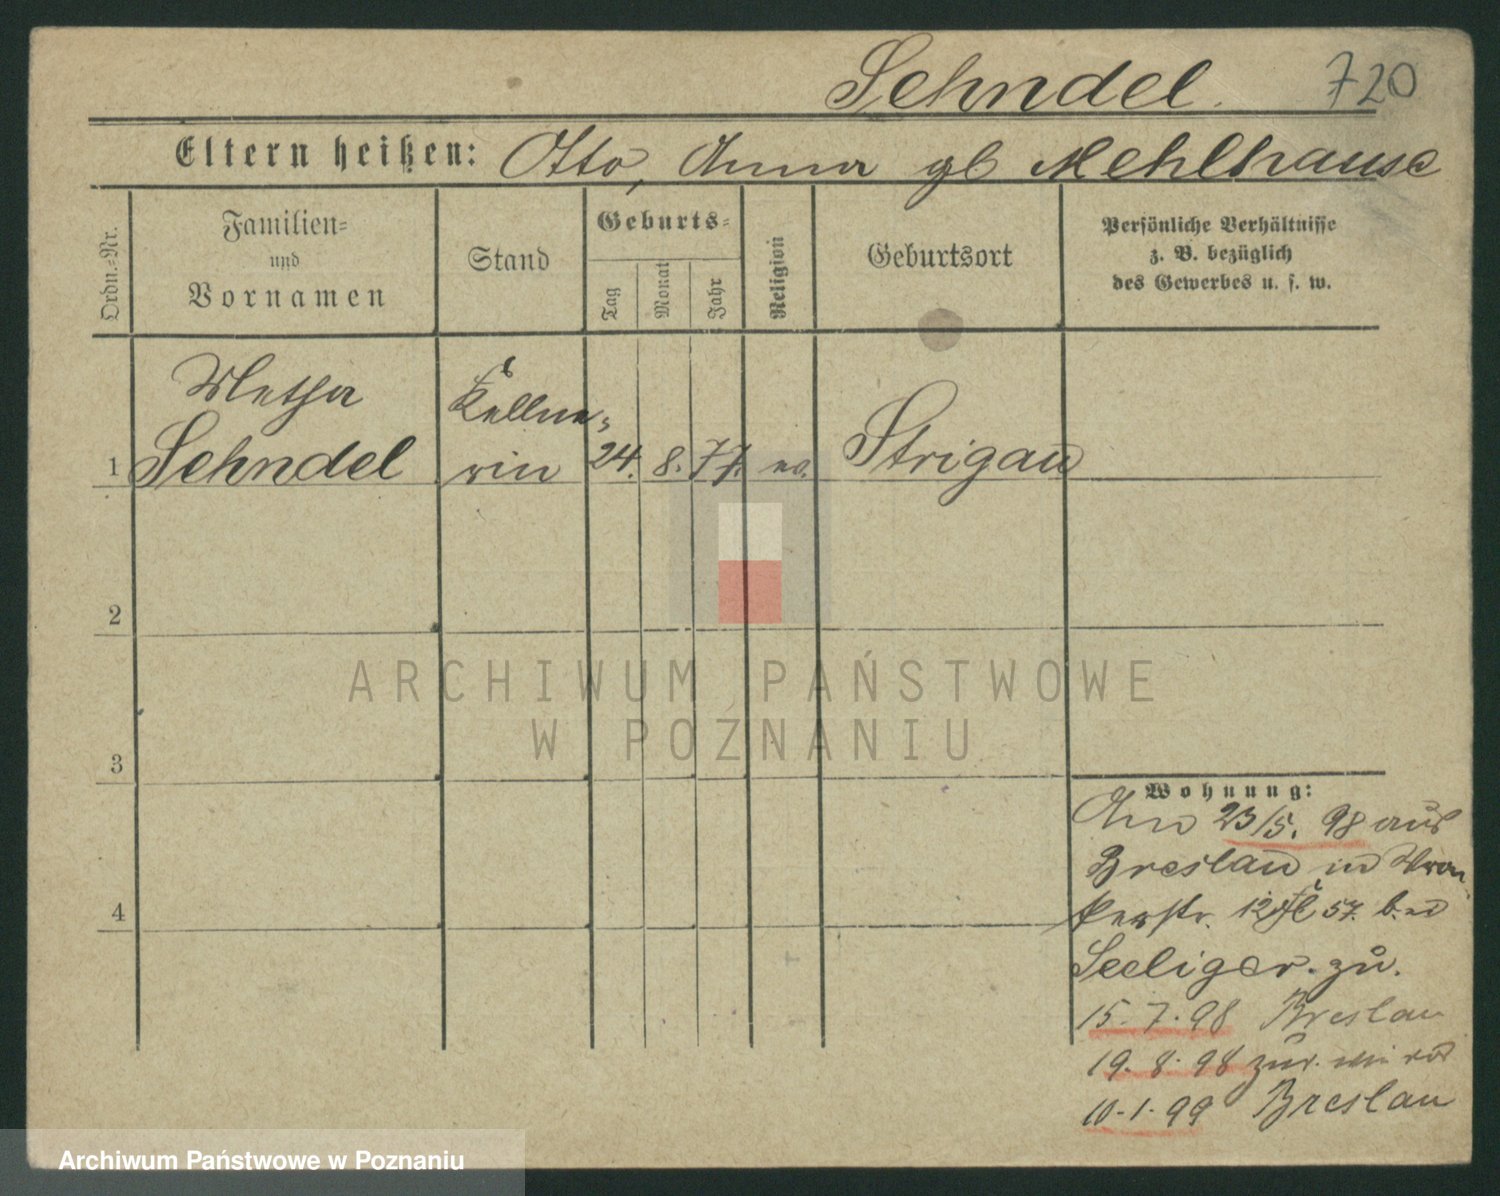 Sehndel. 720
Eltern heißen: Otto, Anna gb Mehlhause
Ordn.-Nr.
Familien-
und
Vornamen
Stand
Geburts-
Tag
Monat
Jahr
Religion
Geburtsort
Persönliche Verhältnisse
z. B. bezüglich
des Gewerbes u. s. w.
Metha
Sehndel
Kellne-
rin
1
24. 8. 77. ev.
Strigau
2
3
4
Wohnung:
Am 23/5. 98 aus
Breslau in Wron
kerstr. 12 57. bei
Seeliger. zu.
15.7.98 Breslau
19.8.98 zur.
10.1.99 Breslau
ARCHIWUM PAŃSTWOWE
W POZNANIU
Archiwum Państwowe w Poznaniu